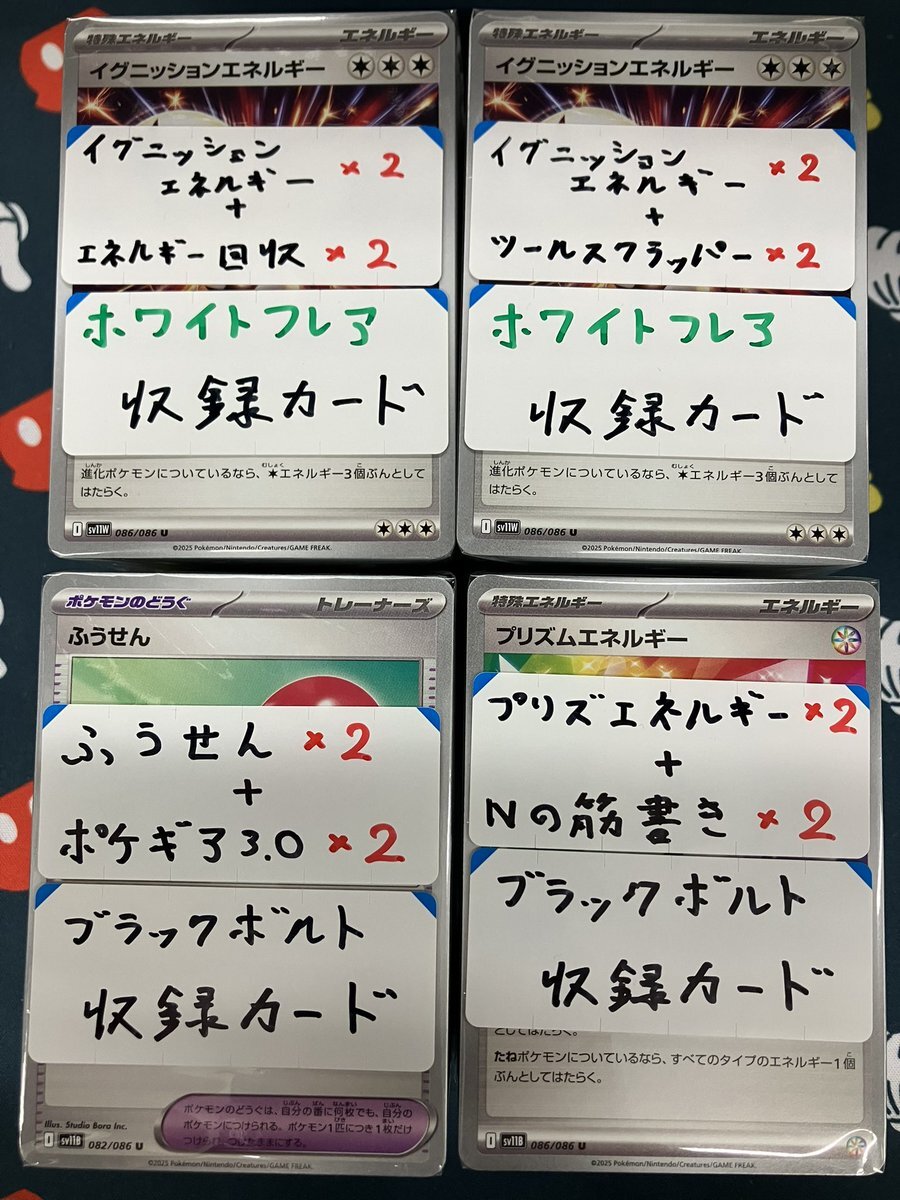 特殊エネルギー エネルギー
イグニッションエネルギー
イグニッション
エネルギー ×2
+
エネルギー回収 ×2
ホワイトフレア
収録カード
進化ポケモンについているなら、エネルギー3個ぶんとして
はたらく。
I sv11W 086/086 U
©2025 Pokémon/Nintendo/Creatures/GAME FREAK.
特殊エネルギー エネルギー
イグニッションエネルギー
イグニッション
エネルギー ×2
+
ツールスクラッパー ×2
ホワイトフレア
収録カード
進化ポケモンについているなら、エネルギー3個ぶんとして
はたらく。
I sv11W 086/086 U
©2025 Pokémon/Nintendo/Creatures/GAME FREAK.
ポケモンのどうぐ トレーナーズ
ふうせん
ふうせん ×2
+
ポケギア3.0 ×2
ブラックボルト
収録カード
ポケモンのどうぐは、自分の番に何枚でも、自分の
ポケモンにつけられる。ポケモン1匹につき1枚だけ
つけられ、つけたままにする。
Illus. Studio Bora Inc.
I sv11B 082/086 U
©2025 Pokémon/Nintendo/Creatures/GAME FREAK.
特殊エネルギー エネルギー
プリズムエネルギー
プリズエネルギー ×2
+
Nの筋書き ×2
ブラックボルト
収録カード
としてはたらく。
たねポケモンについているなら、すべてのタイプのエネルギー1個
ぶんとしてはたらく。
I sv11B 086/086 U
©2025 Pokémon/Nintendo/Creatures/GAME FREAK.